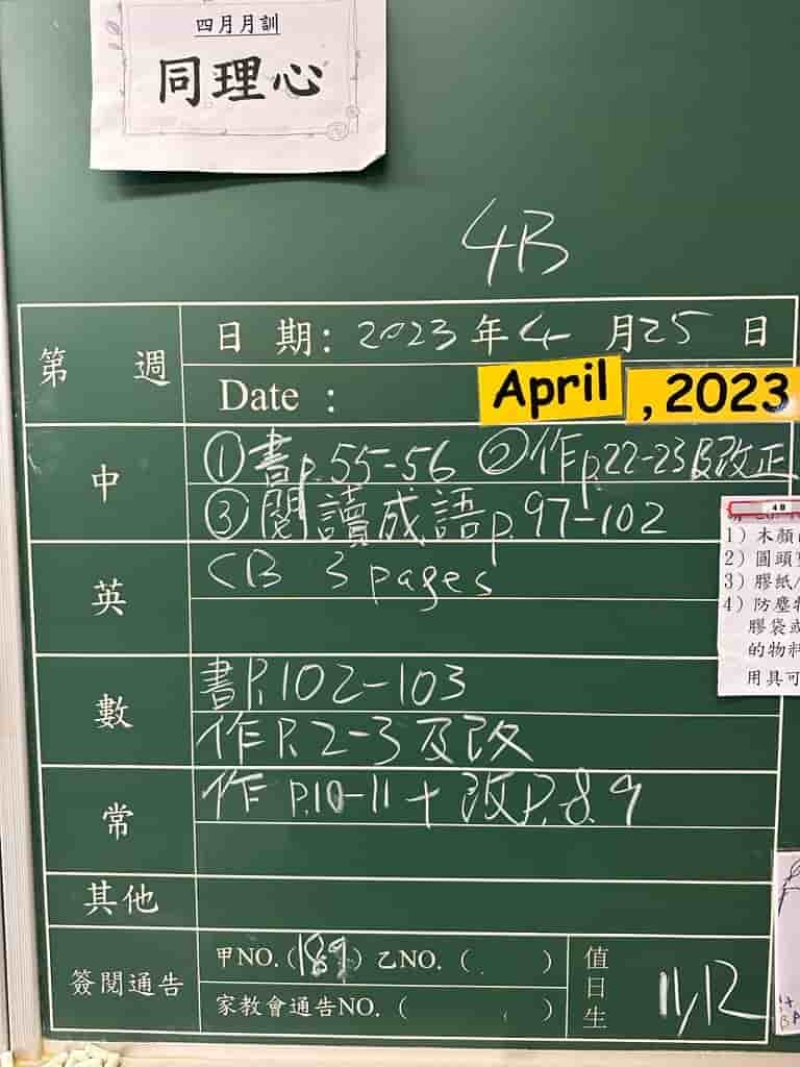 四月月訓
同理心
4B
第 週
日 期: 2023年4月25日
Date :
April , 2023
中
①書p.55-56 ②作p.22-23及改正
③閱讀成語p.97-102
英
CB 3 pages
數
書P.102-103
作P.2-3及改
常
作 P.10-11 + 改P.8,9
其他
簽閱通告
甲NO.(189) 乙NO. ( )
家教會通告NO. ( )
值日生
11/12
4B
1) 木顏
2) 圓頭
3) 膠紙/
4) 防塵
膠袋或
的物料
用具可